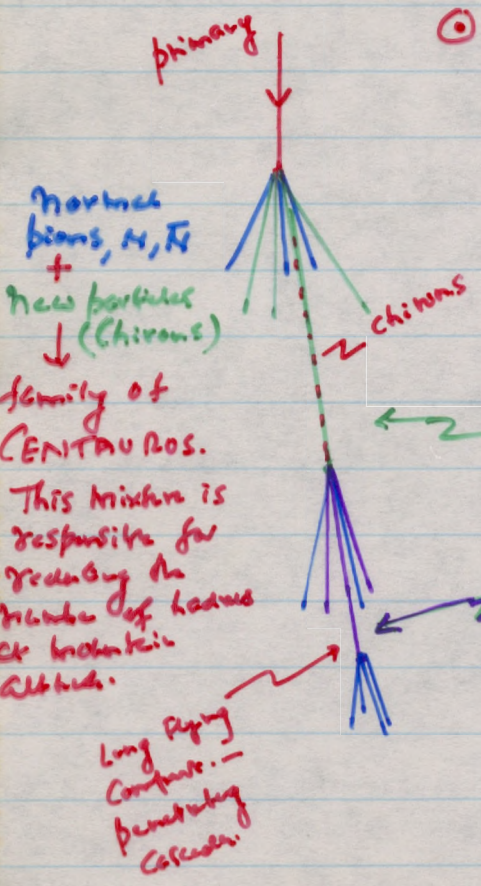 primary
normal
pions, N, N̄
+
New particles
(Chirons)
chirons
family of
CENTAUROS.
This mixture is
responsible for
reducing the
number of hadrons
at mountain
altitude.
Long flying
Component.—
penetrating
Cascades.